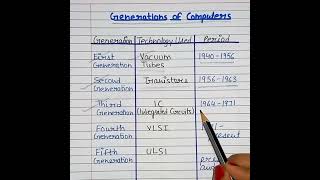 Generations of Computers
Generation Technology Used Period
First Generation Vacuum Tubes 1940-1956
Second Generation Transistors 1956-1963
Third Generation IC (Integrated Circuits) 1964-1971
Fourth Generation VLSI present
Fifth Generation ULSI